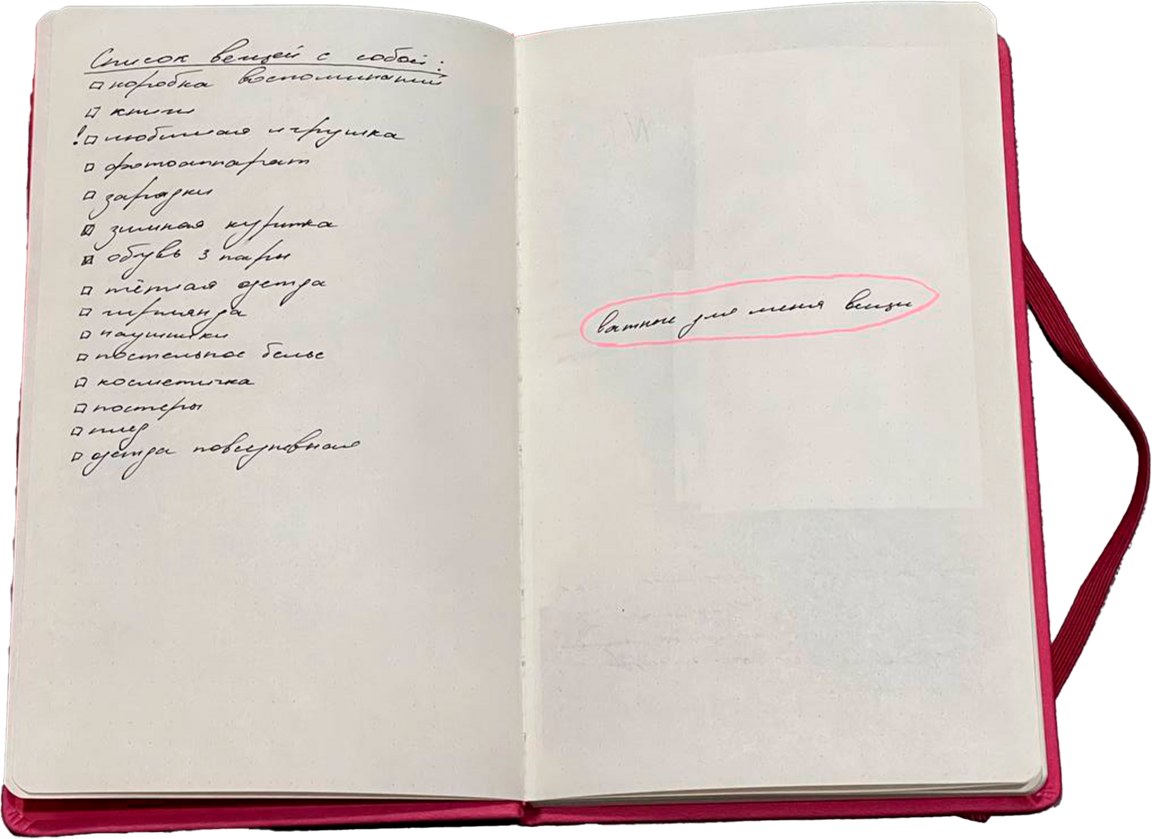 Список вещей с собой:
коробка воспоминаний
книги
! любимая игрушка
фотоаппарат
зарядки
зимняя куртка
обувь 3 пары
тёплая одежда
гирлянда
наушники
постельное белье
косметичка
постеры
плед
одежда повседневная
важные для меня вещи